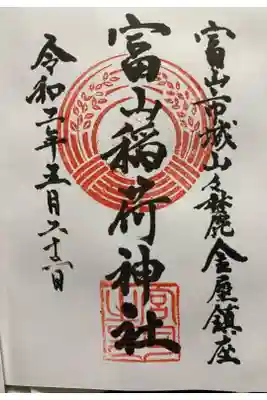 富山市城山々麓金屋鎮座
富山稲荷神社
令和二年五月